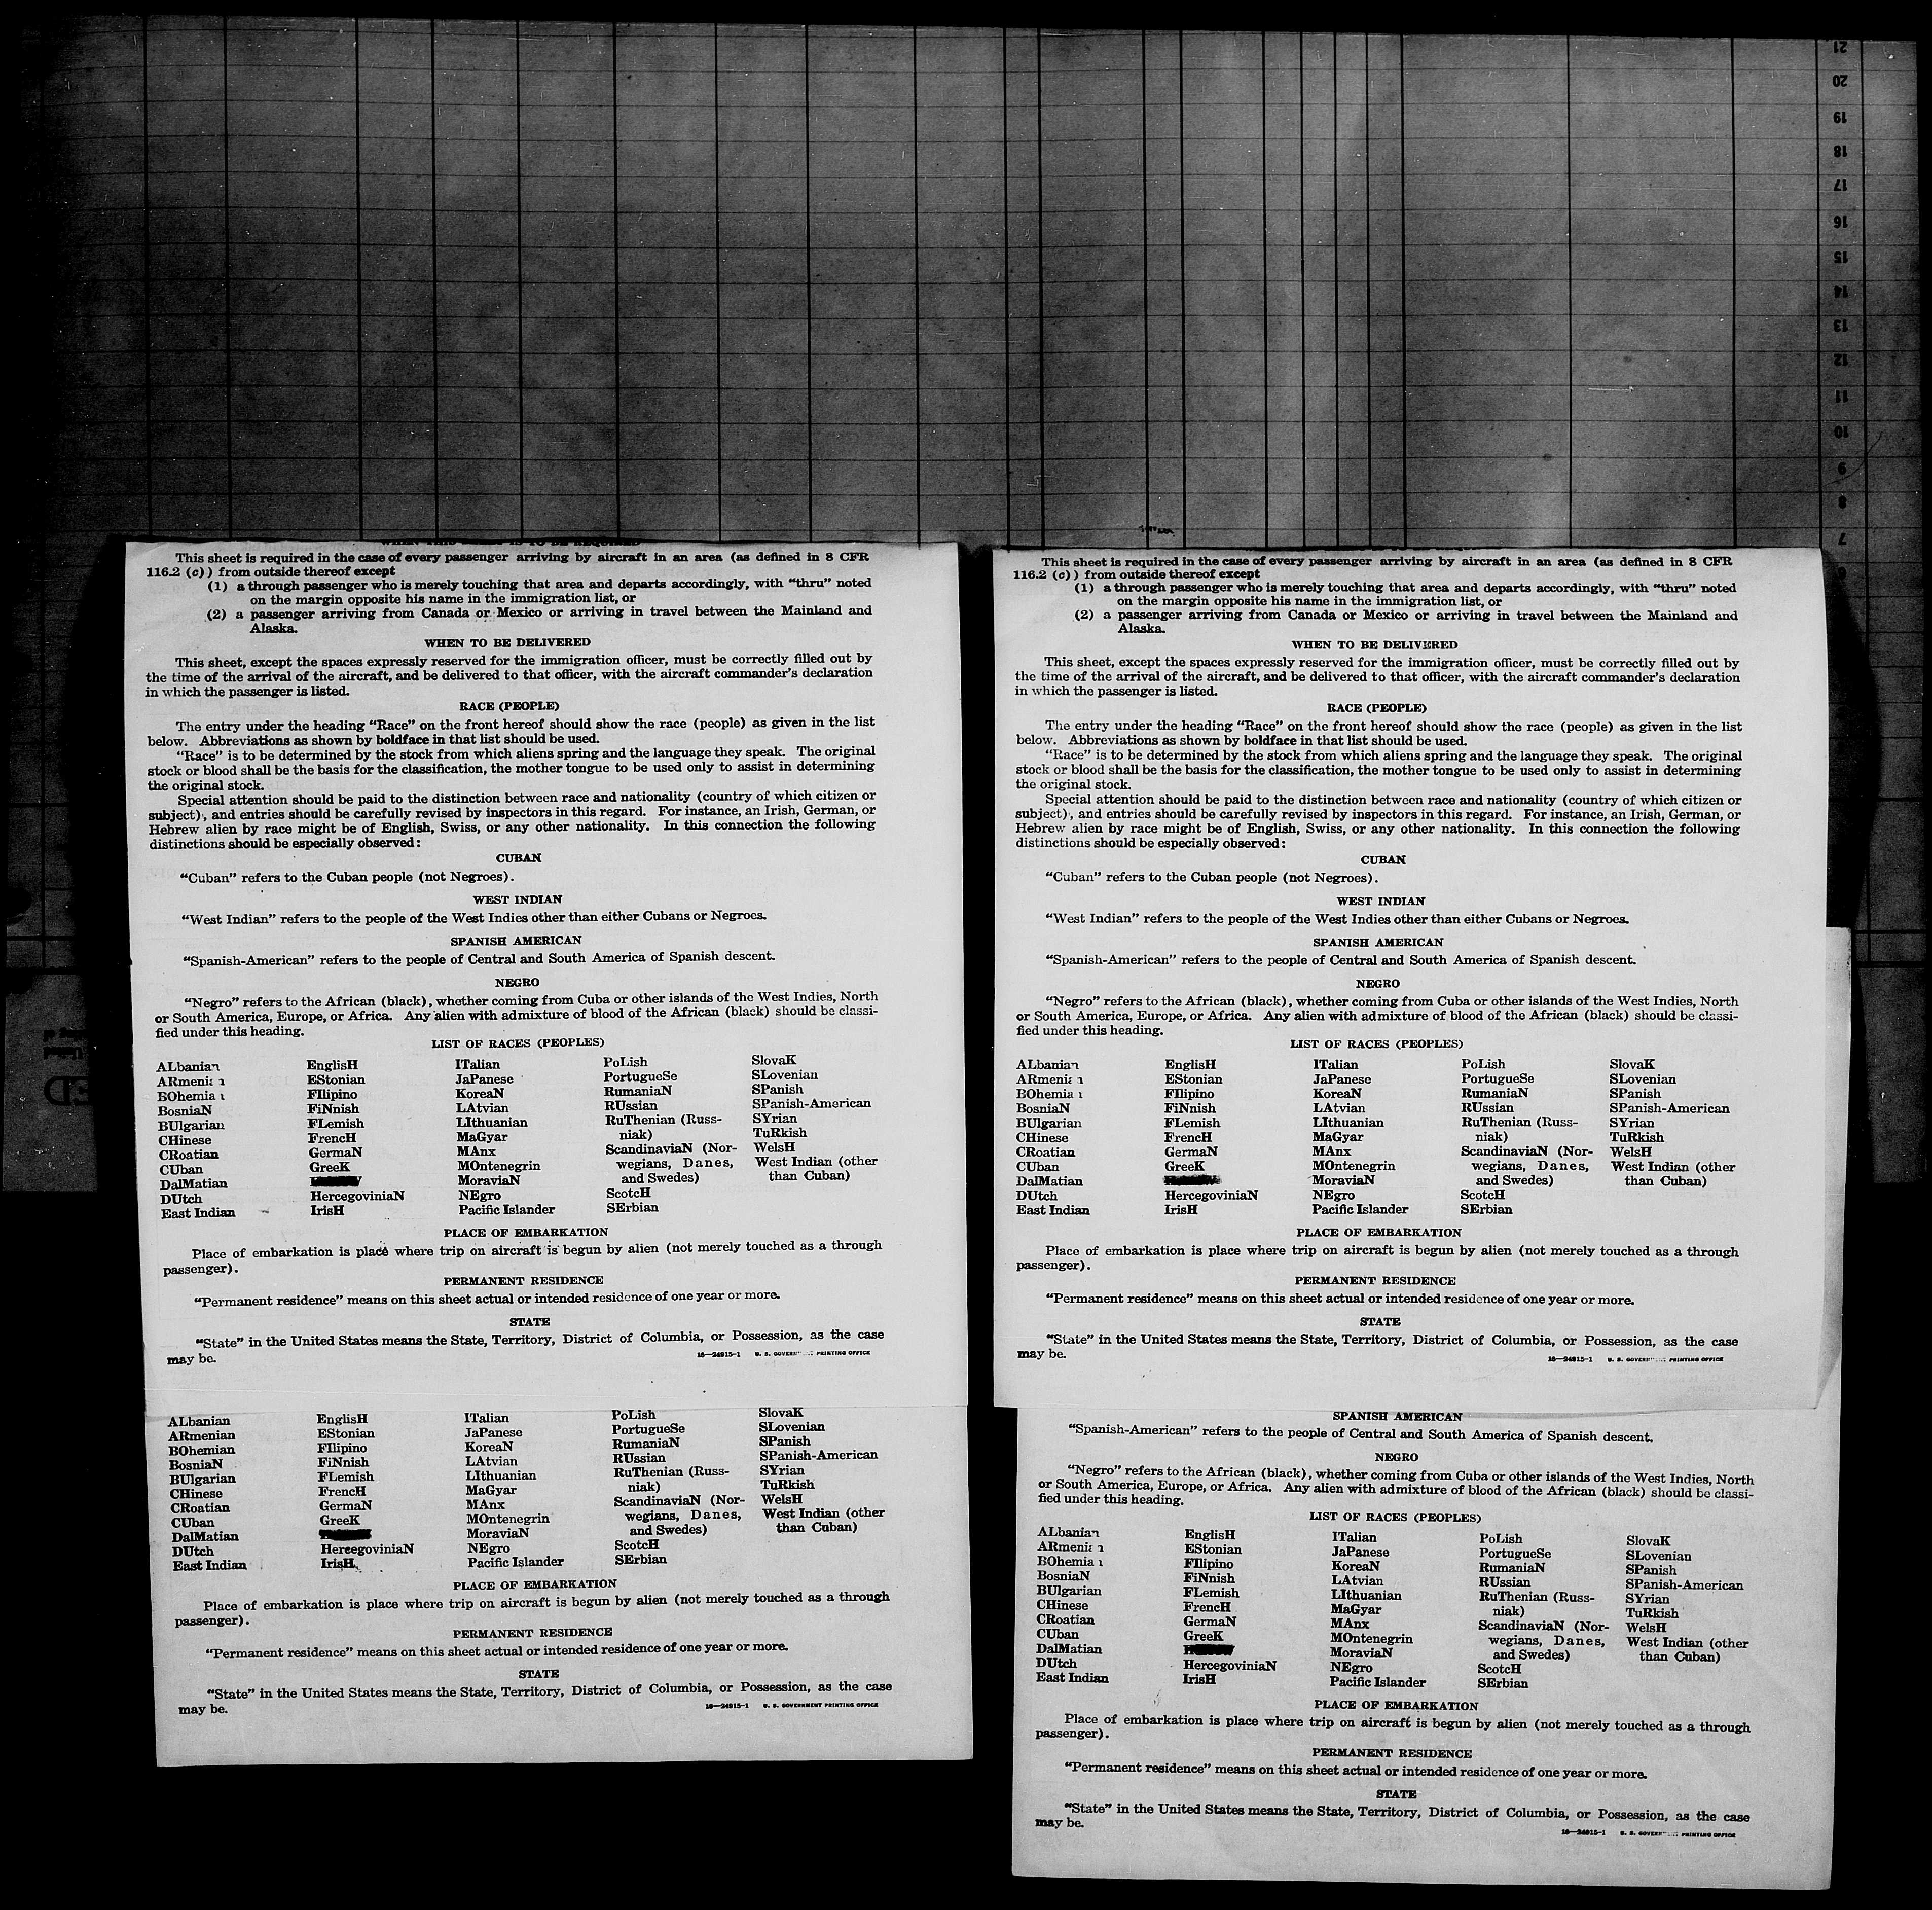 21
20
19
18
17
16
15
14
13
12
11
10
9
8
7
This sheet is required in the case of every passenger arriving by aircraft in an area (as defined in 8 CFR
116.2 (c)) from outside thereof except
(1) a through passenger who is merely touching that area and departs accordingly, with "thru" noted
on the margin opposite his name in the immigration list, or
(2) a passenger arriving from Canada or Mexico or arriving in travel between the Mainland and
Alaska.
WHEN TO BE DELIVERED
This sheet, except the spaces expressly reserved for the immigration officer, must be correctly filled out by
the time of the arrival of the aircraft, and be delivered to that officer, with the aircraft commander's declaration
in which the passenger is listed.
RACE (PEOPLE)
The entry under the heading "Race" on the front hereof should show the race (people) as given in the list
below. Abbreviations as shown by boldface in that list should be used.
"Race" is to be determined by the stock from which aliens spring and the language they speak. The original
stock or blood shall be the basis for the classification, the mother tongue to be used only to assist in determining
the original stock.
Special attention should be paid to the distinction between race and nationality (country of which citizen or
subject), and entries should be carefully revised by inspectors in this regard. For instance, an Irish, German, or
Hebrew alien by race might be of English, Swiss, or any other nationality. In this connection the following
distinctions should be especially observed:
CUBAN
"Cuban" refers to the Cuban people (not Negroes).
WEST INDIAN
"West Indian" refers to the people of the West Indies other than either Cubans or Negroes.
SPANISH AMERICAN
"Spanish-American" refers to the people of Central and South America of Spanish descent.
NEGRO
"Negro" refers to the African (black), whether coming from Cuba or other islands of the West Indies, North
or South America, Europe, or Africa. Any alien with admixture of blood of the African (black) should be classi-
fied under this heading.
LIST OF RACES (PEOPLES)
ALbanian
ARmenian
BOhemian
BosniaN
BUlgarian
CHinese
CRoatian
CUban
DalMatian
DUtch
East Indian
EnglisH
EStonian
FIlipino
FiNnish
FLemish
FrencH
GermaN
GreeK
HercegoviniaN
IrisH
ITalian
JaPanese
KoreaN
LAtvian
LIthuanian
MaGyar
MAnx
MOntenegrin
MoraviaN
NEgro
Pacific Islander
PoLish
PortugueSe
RumaniaN
RUssian
RuThenian (Russ-
niak)
ScandinaviaN (Nor-
wegians, Danes,
and Swedes)
ScotcH
SErbian
SlovaK
SLovenian
SPanish
SPanish-American
SYrian
TuRkish
WelsH
West Indian (other
than Cuban)
PLACE OF EMBARKATION
Place of embarkation is place where trip on aircraft is begun by alien (not merely touched as a through
passenger).
PERMANENT RESIDENCE
"Permanent residence" means on this sheet actual or intended residence of one year or more.
STATE
"State" in the United States means the State, Territory, District of Columbia, or Possession, as the case
may be.
16—24915-1 U. S. GOVERNMENT PRINTING OFFICE
ALbanian
ARmenian
BOhemian
BosniaN
BUlgarian
CHinese
CRoatian
CUban
DalMatian
DUtch
East Indian
EnglisH
EStonian
FIlipino
FiNnish
FLemish
FrencH
GermaN
GreeK
HercegoviniaN
IrisH
ITalian
JaPanese
KoreaN
LAtvian
LIthuanian
MaGyar
MAnx
MOntenegrin
MoraviaN
NEgro
Pacific Islander
PoLish
PortugueSe
RumaniaN
RUssian
RuThenian (Russ-
niak)
ScandinaviaN (Nor-
wegians, Danes,
and Swedes)
ScotcH
SErbian
SlovaK
SLovenian
SPanish
SPanish-American
SYrian
TuRkish
WelsH
West Indian (other
than Cuban)
PLACE OF EMBARKATION
Place of embarkation is place where trip on aircraft is begun by alien (not merely touched as a through
passenger).
PERMANENT RESIDENCE
"Permanent residence" means on this sheet actual or intended residence of one year or more.
STATE
"State" in the United States means the State, Territory, District of Columbia, or Possession, as the case
may be.
16—24915-1 U. S. GOVERNMENT PRINTING OFFICE
This sheet is required in the case of every passenger arriving by aircraft in an area (as defined in 8 CFR
116.2 (c)) from outside thereof except
(1) a through passenger who is merely touching that area and departs accordingly, with "thru" noted
on the margin opposite his name in the immigration list, or
(2) a passenger arriving from Canada or Mexico or arriving in travel between the Mainland and
Alaska.
WHEN TO BE DELIVERED
This sheet, except the spaces expressly reserved for the immigration officer, must be correctly filled out by
the time of the arrival of the aircraft, and be delivered to that officer, with the aircraft commander's declaration
in which the passenger is listed.
RACE (PEOPLE)
The entry under the heading "Race" on the front hereof should show the race (people) as given in the list
below. Abbreviations as shown by boldface in that list should be used.
"Race" is to be determined by the stock from which aliens spring and the language they speak. The original
stock or blood shall be the basis for the classification, the mother tongue to be used only to assist in determining
the original stock.
Special attention should be paid to the distinction between race and nationality (country of which citizen or
subject), and entries should be carefully revised by inspectors in this regard. For instance, an Irish, German, or
Hebrew alien by race might be of English, Swiss, or any other nationality. In this connection the following
distinctions should be especially observed:
CUBAN
"Cuban" refers to the Cuban people (not Negroes).
WEST INDIAN
"West Indian" refers to the people of the West Indies other than either Cubans or Negroes.
SPANISH AMERICAN
"Spanish-American" refers to the people of Central and South America of Spanish descent.
NEGRO
"Negro" refers to the African (black), whether coming from Cuba or other islands of the West Indies, North
or South America, Europe, or Africa. Any alien with admixture of blood of the African (black) should be classi-
fied under this heading.
LIST OF RACES (PEOPLES)
ALbanian
ARmenian
BOhemian
BosniaN
BUlgarian
CHinese
CRoatian
CUban
DalMatian
DUtch
East Indian
EnglisH
EStonian
FIlipino
FiNnish
FLemish
FrencH
GermaN
GreeK
HercegoviniaN
IrisH
ITalian
JaPanese
KoreaN
LAtvian
LIthuanian
MaGyar
MAnx
MOntenegrin
MoraviaN
NEgro
Pacific Islander
PoLish
PortugueSe
RumaniaN
RUssian
RuThenian (Russ-
niak)
ScandinaviaN (Nor-
wegians, Danes,
and Swedes)
ScotcH
SErbian
SlovaK
SLovenian
SPanish
SPanish-American
SYrian
TuRkish
WelsH
West Indian (other
than Cuban)
PLACE OF EMBARKATION
Place of embarkation is place where trip on aircraft is begun by alien (not merely touched as a through
passenger).
PERMANENT RESIDENCE
"Permanent residence" means on this sheet actual or intended residence of one year or more.
STATE
"State" in the United States means the State, Territory, District of Columbia, or Possession, as the case
may be.
16—24915-1 U. S. GOVERNMENT PRINTING OFFICE
SPANISH AMERICAN
"Spanish-American" refers to the people of Central and South America of Spanish descent.
NEGRO
"Negro" refers to the African (black), whether coming from Cuba or other islands of the West Indies, North
or South America, Europe, or Africa. Any alien with admixture of blood of the African (black) should be classi-
fied under this heading.
LIST OF RACES (PEOPLES)
ALbanian
ARmenian
BOhemian
BosniaN
BUlgarian
CHinese
CRoatian
CUban
DalMatian
DUtch
East Indian
EnglisH
EStonian
FIlipino
FiNnish
FLemish
FrencH
GermaN
GreeK
HercegoviniaN
IrisH
ITalian
JaPanese
KoreaN
LAtvian
LIthuanian
MaGyar
MAnx
MOntenegrin
MoraviaN
NEgro
Pacific Islander
PoLish
PortugueSe
RumaniaN
RUssian
RuThenian (Russ-
niak)
ScandinaviaN (Nor-
wegians, Danes,
and Swedes)
ScotcH
SErbian
SlovaK
SLovenian
SPanish
SPanish-American
SYrian
TuRkish
WelsH
West Indian (other
than Cuban)
PLACE OF EMBARKATION
Place of embarkation is place where trip on aircraft is begun by alien (not merely touched as a through
passenger).
PERMANENT RESIDENCE
"Permanent residence" means on this sheet actual or intended residence of one year or more.
STATE
"State" in the United States means the State, Territory, District of Columbia, or Possession, as the case
may be.
16—24915-1 U. S. GOVERNMENT PRINTING OFFICE